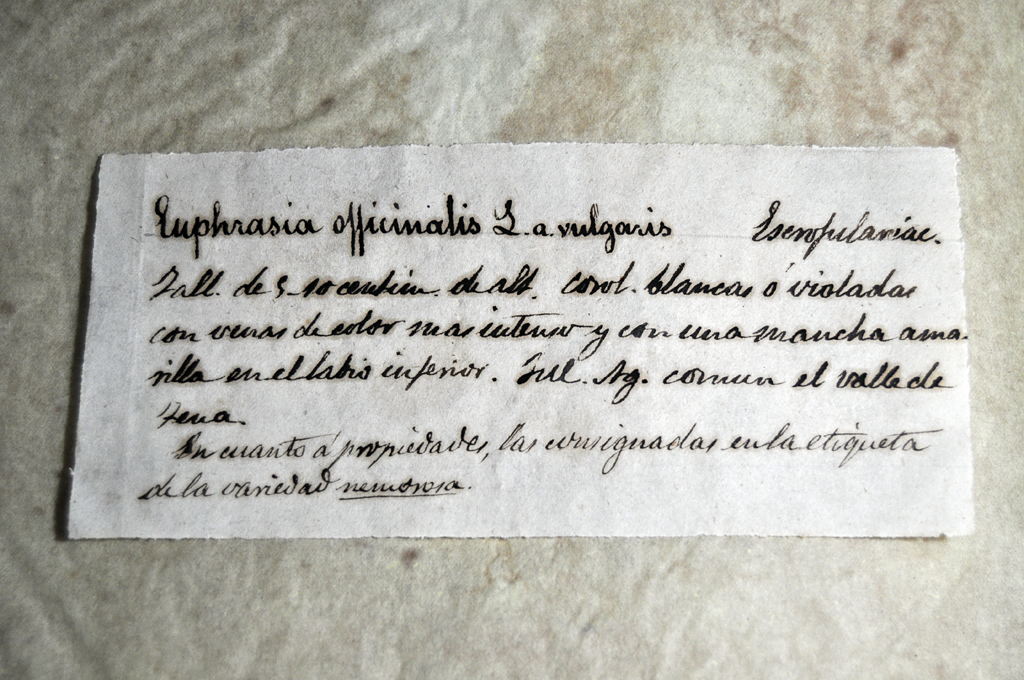 Euphrasia officinalis L. a. vulgaris Escrofulariác.
Tall. de 5-10 centím. de alt. Corol. blancas ó violadas
con venas de color mas intenso y con una mancha ama-
rilla en el labio inferior. Jul. Ag. comun el valle de
Tena.
En cuanto á propiedades, las consignadas en la etiqueta
de la variedad nemorosa.